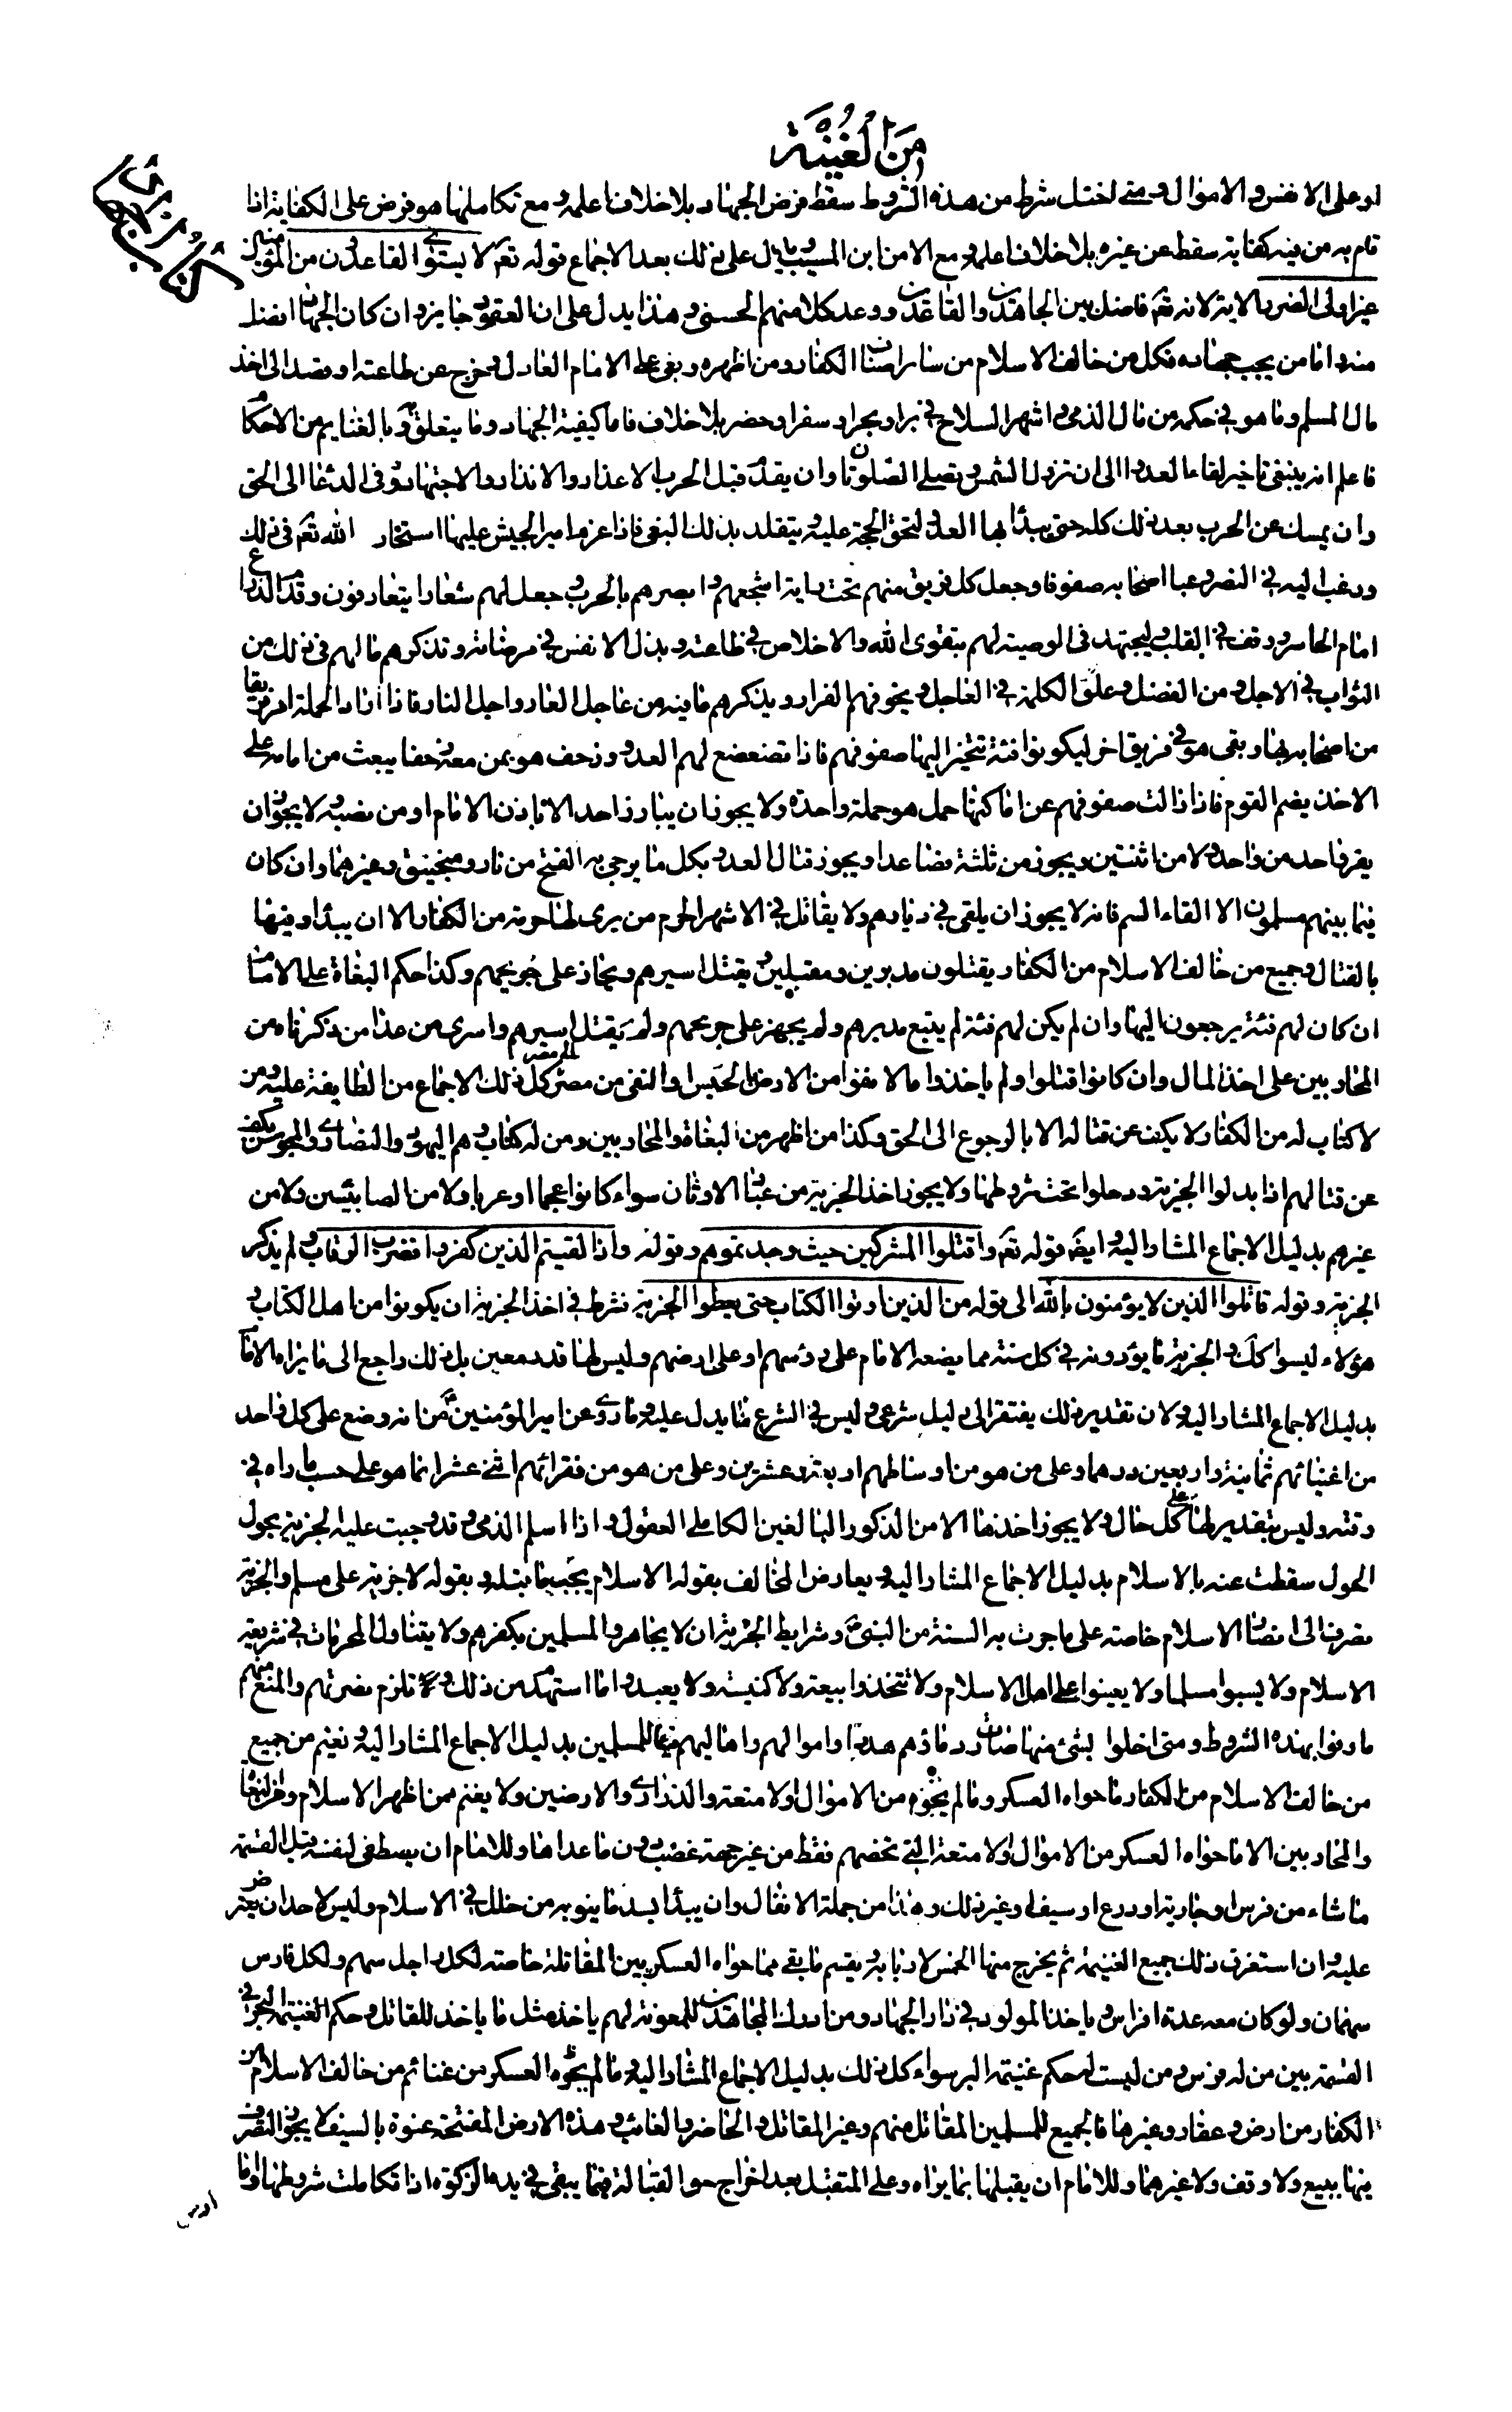 من الغنية
كتاب الجهاد
او على الانفس والاموال ومتى اختل شرط من هذه الشروط سقط فرض الجهاد بلا خلاف اعلمه ومع تكاملها هو فرض على الكفاية اذا
قام به من فيه كفاية سقط عن غيره بلا خلاف اعلمه مع الا من ابن المسيب دليل على ذلك بعد الاجماع قوله تعم لا يستوى القاعدون من المؤمنين
غير اولى الضرر الاية لانه تعم فاضل بين المجاهدين والقاعدين ووعد كلا منهم الحسنى وهذا يدل على ان القعود جايز وان كان الجهاد افضل
منه واما من يجب جهاده فكل من خالف الاسلام من ساير اصناف الكفار ومن اظهره وبغى على الامام العادل وخرج عن طاعته او قصد الى اخذ
مال المسلم وما هو في حكمه من مال الذمى واشهر السلاح في بر او بحر او سفر او حضر بلا خلاف فاما كيفية الجهاد وما يتعلق به وبالغنايم من الاحكام
فاعلم انه ينبغى تاخير لقاء العدو الى ان تزول الشمس وتصلى الصلوتان وان يقدم قبل الحرب الاعذار والانذار والاجتهاد فى الدعاء الى الحق
وان يمسك عن الحرب بعد ذلك كله حتى يبدأ بها العدو لتحق الحجة عليه ويتقلد بذلك البغى فاذا عزم امير الجيش عليها استخار الله تعم فى ذلك
ورغب اليه في النصر وعبا اصحابه صفوفا وجعل كل فريق منهم تحت راية اشجعهم وابصرهم بالحرب وجعل لهم شعارا يتعارفون وقدم الدراع
امام الحاسر ووقف في القلب وليجتهد فى الوصية لهم بتقوى الله والاخلاص في طاعته وبذل الانفس في مرضاته وتذكرهم ما لهم فى ذلك من
الثواب في الاجل ومن الفضل وعلو الكلمة في العاجل ويخوفهم الفرار ويذكرهم ما فيه من عاجل العار واجل النار فاذا اراد الحملة امر فريقا
من اصحابه بها وبقى هو في فريق اخر ليكونوا فئة تتحيز اليها صفوفهم فاذا تضعضع لهم العدو وزحف هو بمن معه زحفا يبعث من امامه على
الاخذ بضم القوم فاذا زالت صفوفهم عن اماكنها حمل هو حملة واحدة ولا يجوز ان يبارز احد الا باذن الامام او من نصبه ولا يجوز ان
يفر احد من واحد ولا من اثنتين ويجوز من ثلثة فصاعدا ويجوز قتال العدو بكل ما يرجى به الفتح من نار ومنجنيق وغيرهما وان كان
فيما بينهم مسلمون الا القاء السم فانه لا يجوز ان يلقى في ديارهم ولا يقاتل في الاشهر الحرم من يرى لها حرمة من الكفار الا ان يبدأوا فيها
بالقتال وجميع من خالف الاسلام من الكفار يقتلون مدبرين ومقبلين ويقتل اسيرهم ويجاز على جريحهم وكذا حكم البغاة على الامام
ان كان لهم فئة يرجعون اليها وان لم يكن لهم فئة لم يتبع مدبرهم ولم يجهز على جريحهم ولم يقتل اسيرهم واسرى من عدا من ذكرناه من
المحاربين على اخذ المال وان كانوا قتلوا ولم ياخذوا مالا نفوا من الارض بالحبس او النفى من مصر الى مصر كل ذلك للاجماع من الطايفة عليه ومن
لا كتاب له من الكفار لا يكف عن قتاله الا بالرجوع الى الحق وكذا من اظهر من البغاة والمحاربين ومن له كتاب وهم اليهود والنصارى والمجوس يكف
عن قتالهم اذا بذلوا الجزية ودخلوا تحت شروطها ولا يجوز اخذ الجزية من عباد الاوثان سواء كانوا عجما او عربا ولا من الصابئين ولا من
غيرهم بدليل الاجماع المشار اليه وايضا قوله تعم واقتلوا المشركين حيث وجدتموهم وقوله واذا لقيتم الذين كفروا فضرب الرقاب ولم يذكر
الجزية وقوله قاتلوا الذين لا يؤمنون بالله الى قوله من الذين اوتوا الكتاب حتى يعطوا الجزية فشرط في اخذ الجزية ان يكونوا من اهل الكتاب و
هؤلاء ليسوا كك والجزية ما يؤدونه في كل سنة مما يضعه الامام على رؤسهم او على ارضهم وليس لها قدر معين بل ذلك راجع الى ما يراه الامام
بدليل الاجماع المشار اليه ولان تقدير ذلك يفتقر الى دليل شرعى وليس في الشرع ما يدل عليه وما روى عن امير المؤمنين ع من انه وضع على كل واحد
من اغنيائهم ثمانية واربعين درهما وعلى من هو من اوساطهم اربعة وعشرين وعلى من هو من فقرائهم اثنى عشر انما هو على حسب ما راه في
وقته وليس بتقدير لها على كل حال ولا يجوز اخذها الا من الذكور البالغين الكاملى العقول واذا اسلم الذمى وقد وجبت عليه الجزية بحول
الحول سقطت عنه بالاسلام بدليل الاجماع المشار اليه ويعارض المخالف بقوله الاسلام يجب ما قبله وبقوله لا جزية على مسلم والجزية
تصرف الى انصار الاسلام خاصة على ما جرت به السنة من النبى ص وشرايط الجزية ان لا يجاهروا المسلمين بكفرهم ولا يتناول المحرمات في شريعة
الاسلام ولا يسبوا مسلما ولا يعينوا على اهل الاسلام ولا تتخذوا بيعة ولا كنيسة ولا يعيدوا ما استهدم من ذلك و تلزم نصرتهم والمنع منهم
ما وفوا بهذه الشروط ومتى اخلوا بشئ منها صارت دماؤهم هدرا واموالهم واهاليهم فيئا للمسلمين بدليل الاجماع المشار اليه ونغنم من جميع
من خالف الاسلام من الكفار ما حواه العسكر وما لم يحوه من الاموال والامتعة والذرارى والارضين ولا يغنم ممن اظهر الاسلام من البغاة
والمحاربين الا ما حواه العسكر من الاموال والامتعة التى تخصهم فقط من غير جهة غصب دون ما عداها وللامام ان يصطفى لنفسه قبل القسمة
ما شاء من فرس او جارية او درع او سيف او غير ذلك وهذا من جملة الانفال وان يبدأ بسد ما ينوبه من خلل في الاسلام وليس لاحد ان يعترض
عليه وان استغرق ذلك جميع الغنيمة ثم يخرج منها الخمس لاربابه ويقسم ما بقى مما حواه العسكر بين المقاتلة خاصة لكل راجل سهم ولكل فارس
سهمان ولو كان معه عدة افراس وياخذ المولود في دار الجهاد ومن ادرك المجاهدين للمعونة لهم ياخذ مثل ما ياخذ المقاتل وحكم الغنيمة البحر في
القسمة بين من له فرس ومن ليست له حكم غنيمة البر سواء كل ذلك بدليل الاجماع المشار اليه وما لم يحوه العسكر من غنائم من خالف الاسلام من
الكفار من ارض وعقار وغيرها فالجميع للمسلمين المقاتل منهم وغير المقاتل والحاضر والغائب وهذه الارض المفتتحة عنوة بالسيف لا يجوز التصرف
فيها ببيع ولا وقف ولا غيرهما وللامام ان يقبلها بما يراه وعلى المتقبل بعد اخراج حق القبالة فيما يبقى في يده الزكوة اذا تكاملت شروطها واما
ارض